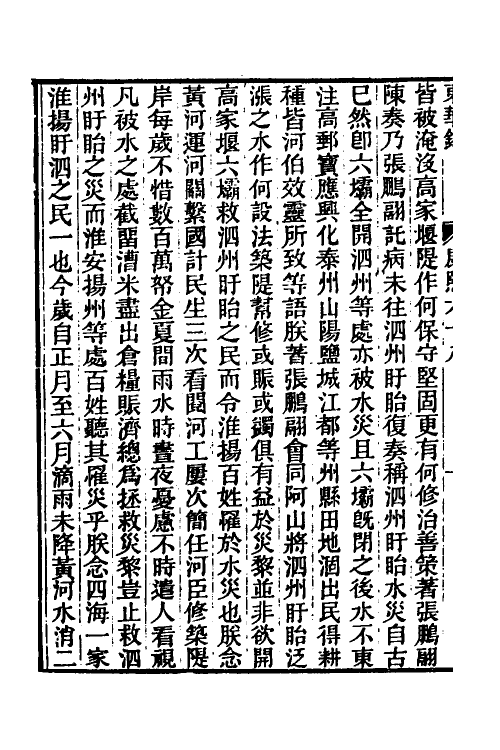 皆被淹沒高家堰隄作何保守堅固更有何修治善策著張鵬翮
陳奏乃張鵬翮託病未往泗州盱眙復奏稱泗州盱眙水災自古
已然卽六壩全開泗州等處亦被水災且六壩旣閉之後水不東
注高郵寶應興化泰州山陽鹽城江都等州縣田地涸出民得耕
種皆河伯效靈所致等語朕著張鵬翮會同阿山將泗州盱眙泛
漲之水作何設法築隄幫修或賑或蠲俱有益於災黎並非欲開
高家堰六壩救泗州盱眙之民而令淮揚百姓罹於水災也朕念
黃河運河關繫國計民生三次看閱河工屢次簡任河臣修築隄
岸每歲不惜數百萬帑金夏間雨水時晝夜憂慮不時遣人看視
凡被水之處截留漕米盡出倉糧賑濟總爲拯救災黎豈止救泗
州盱眙之災而淮安揚州等處百姓聽其罹災乎朕念四海一家
淮揚盱泗之民一也今歲自正月至六月滴雨未降黃河水消二